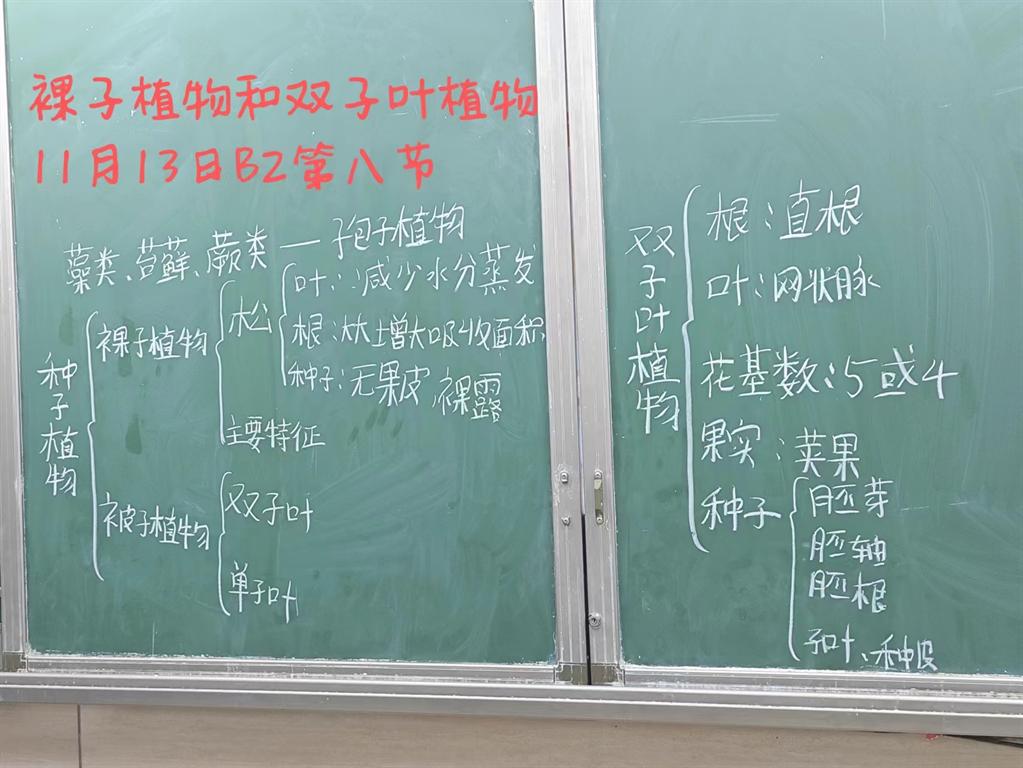 裸子植物和双子叶植物
11月13日B2第八节
藻类、苔藓、蕨类 — 孢子植物
种子植物
裸子植物
松
叶:减少水分蒸发
根:增大吸收面积
种子:无果皮,裸露
主要特征
被子植物
双子叶
单子叶
双子叶植物
根:直根
叶:网状脉
花基数:5或4
果实:荚果
种子
胚芽
胚轴
胚根
子叶、种皮